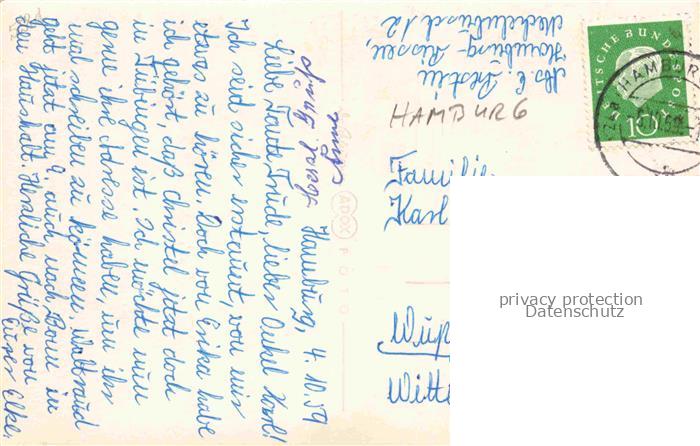 Hamburg, 4.10.59
Liebe Tante Trude, lieber Onkel Karl!
Ihr seid sicher erstaunt, von mir
etwas zu hören. Doch von Erika habe
ich gehört, daß Christel jetzt doch
in Tübingen ist. Ich möchte nun
gerne ihre Adresse haben, um ihr
mal schreiben zu können. Waltraud
geht jetzt am 9. auch nach Bonn in
den Haushalt. Herzliche Grüße von
Eurer Elke.
Hamburg-Rissen,
HAMBURG
Familie
Karl
Wup
Witte
ADOX
FOTO
TSCHE BUNDESPO
10
HAMBUR
privacy protection
Datenschutz